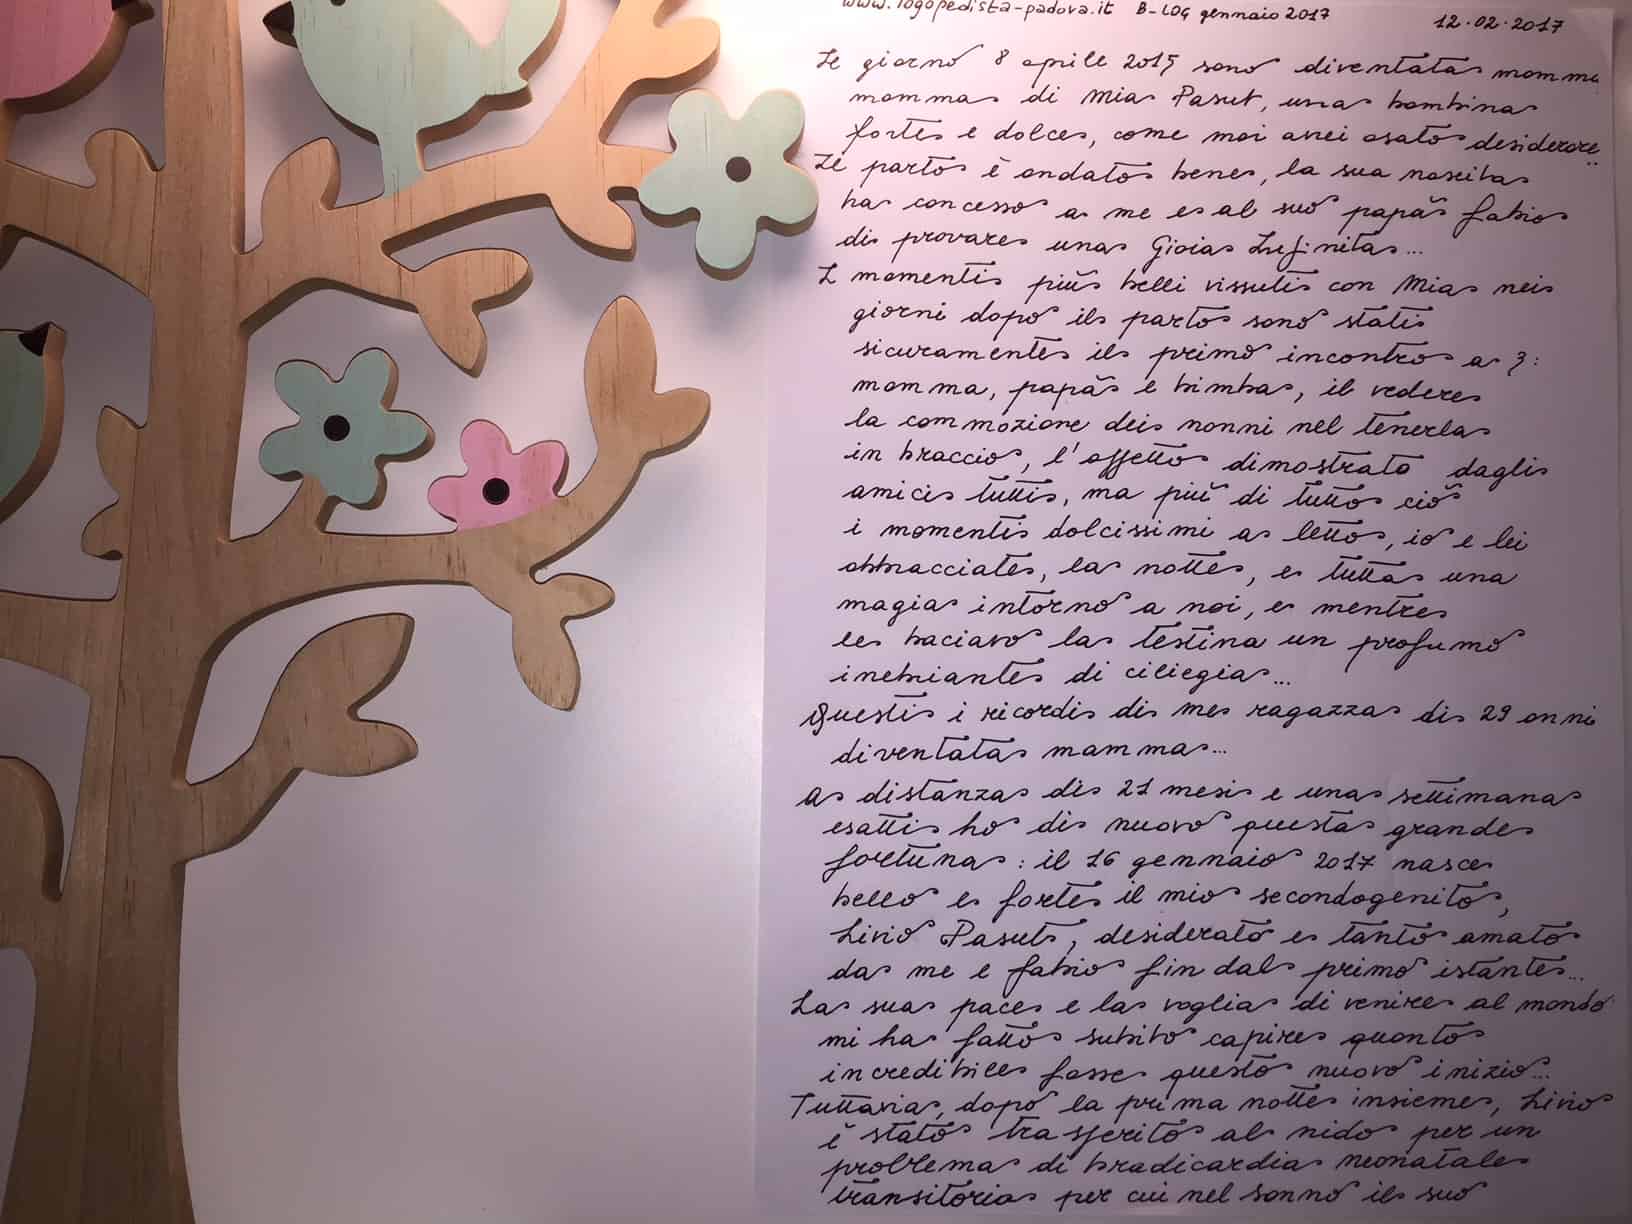 www.logopedista-padova.it B-LOG gennaio 2017 12.02.2017
Il giorno 8 aprile 2015 sono diventata mamma
mamma di Mia Pasut, una bambina
forte e dolce, come mai avrei osato desiderare..
Il parto è andato bene, la sua nascita
ha concesso a me e al suo papà Fabio
di provare una Gioia Infinita...
I momenti più belli vissuti con Mia nei
giorni dopo il parto sono stati
sicuramente il primo incontro a 3:
mamma, papà e bimba, il vedere
la commozione dei nonni nel tenerla
in braccio, l'affetto dimostrato dagli
amici tutti, ma più di tutto ciò
i momenti dolcissimi a letto, io e lei
abbracciate, la notte, e tutta una
magia intorno a noi, e mentre
le baciavo la testina un profumo
inebriante di ciliegia...
Questi i ricordi di me ragazza di 29 anni
diventata mamma...
A distanza di 21 mesi e una settimana
esatti ho di nuovo questa grande
fortuna: il 16 gennaio 2017 nasce
bello e forte il mio secondogenito,
Livio Pasut, desiderato e tanto amato
da me e Fabio fin dal primo istante...
La sua pace e la voglia di venire al mondo
mi ha fatto subito capire quanto
incredibile fosse questo nuovo inizio...
Tuttavia, dopo la prima notte insieme, Livio
è stato trasferito al nido per un
problema di bradicardia neonatale
transitoria per cui nel sonno il suo